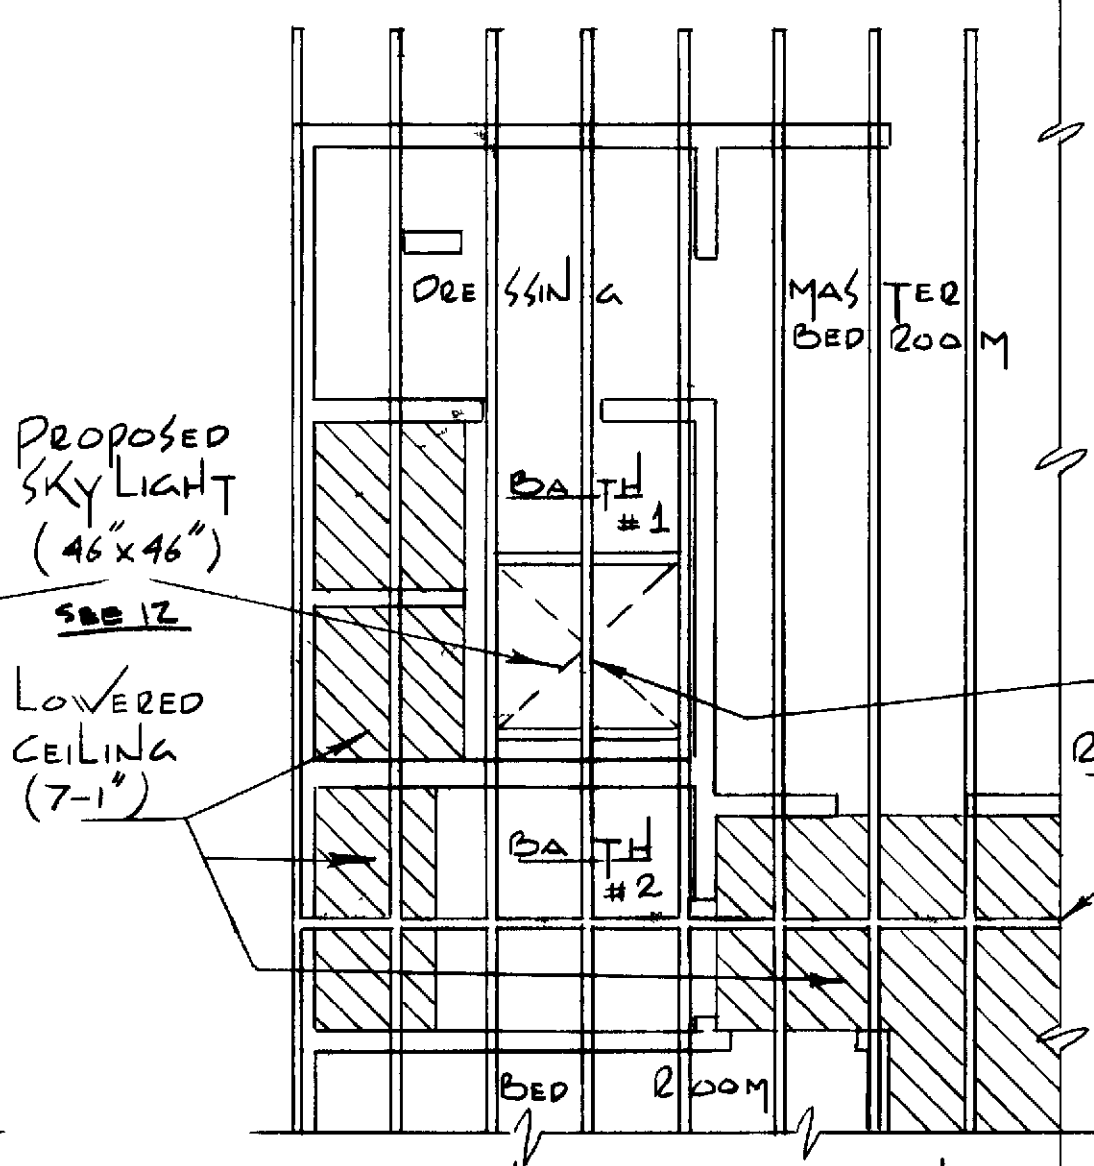 DRESSING
MASTER
BEDROOM
PROPOSED
SKYLIGHT
(46"x46")
SEE 12
BATH
#1
LOWERED
CEILING
(7-1")
BATH
#2
BED ROOM